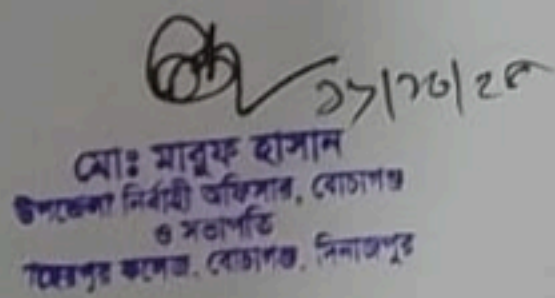 ২১/১০/২৫
মোঃ মারুফ হাসান
উপজেলা নির্বাহী অফিসার, বোচাগঞ্জ
ও সভাপতি
কলেজ, বোচাগঞ্জ, দিনাজপুর